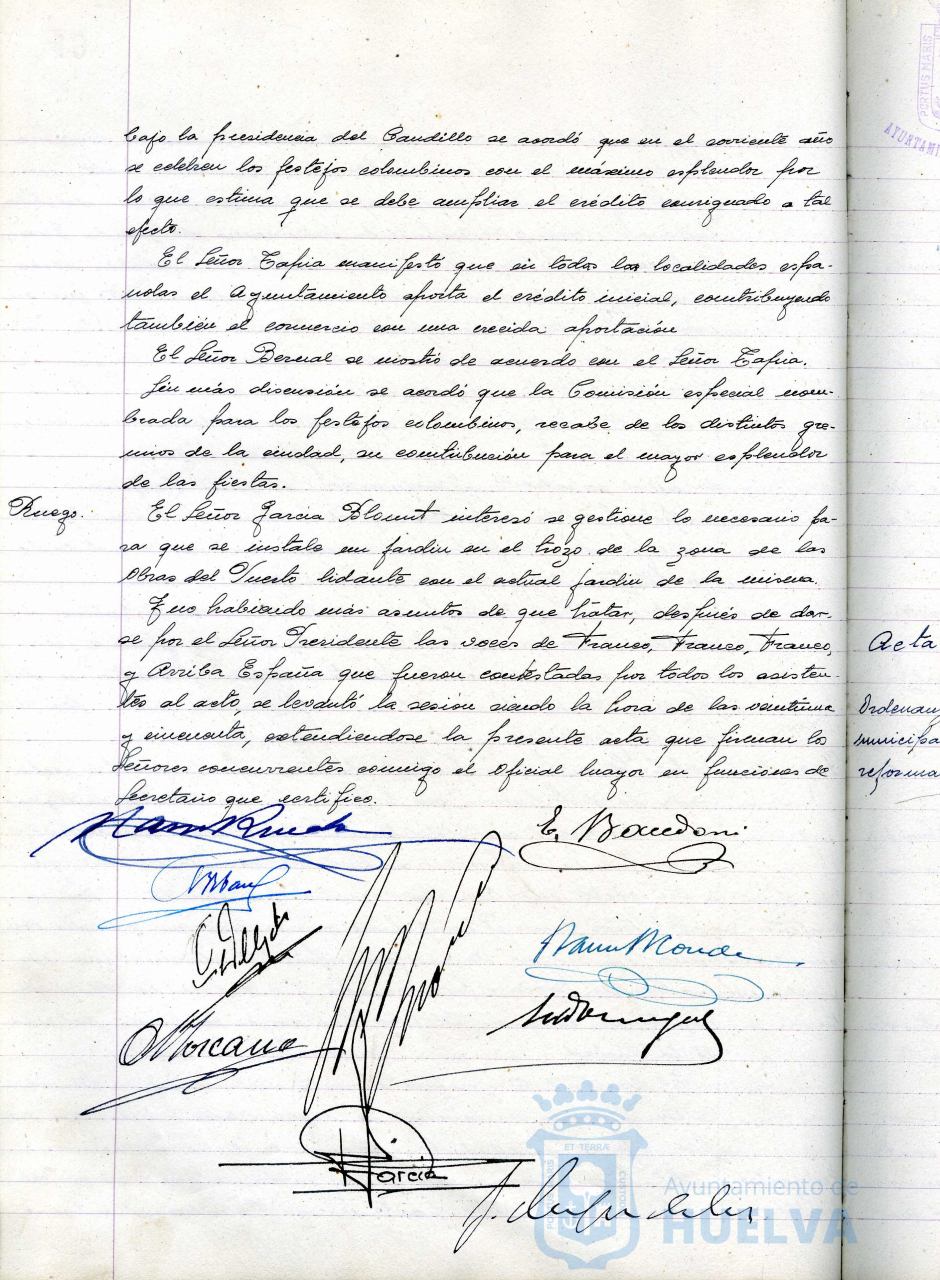 bajo la presidencia del Caudillo se acordó que en el corriente año
se celebren los festejos colombinos con el máximo esplendor por
lo que estima que se debe ampliar el crédito consignado a tal
efecto.
El Señor Tapia manifestó que en todas las localidades espa-
ñolas el Ayuntamiento aporta el crédito inicial, contribuyendo
también el comercio con una crecida aportación
El Señor Bernal se mostró de acuerdo con el Señor Tapia.
Sin más discusión se acordó que la Comisión especial nom-
brada para los festejos colombinos, recabe de los distintos gre-
mios de la ciudad, su contribución para el mayor esplendor
de las fiestas.
Ruego.
El Señor Garcia Blount interesó se gestione lo necesario pa-
ra que se instale un jardin en el trozo de la zona de las
Obras del Puerto lidante con el actual jardin de la misma.
Y no habiendo más asuntos de que tratar, después de dar-
se por el Señor Presidente las voces de Franco, Franco, Franco,
y Arriba España que fueron contestadas por todos los asisten-
tes al acto, se levantó la sesión siendo la hora de las veintiuna
y cincuenta, extendiendose la presente acta que firman los
Señores concurrentes conmigo el Oficial Mayor en funciones de
Secretario que certifico.
E.
Garcia
Acta
Ordenan
municipa
reforma
PORTUS MARIS
ET TERRÆ
CUSTODIA
Ayuntamiento de
HUELVA